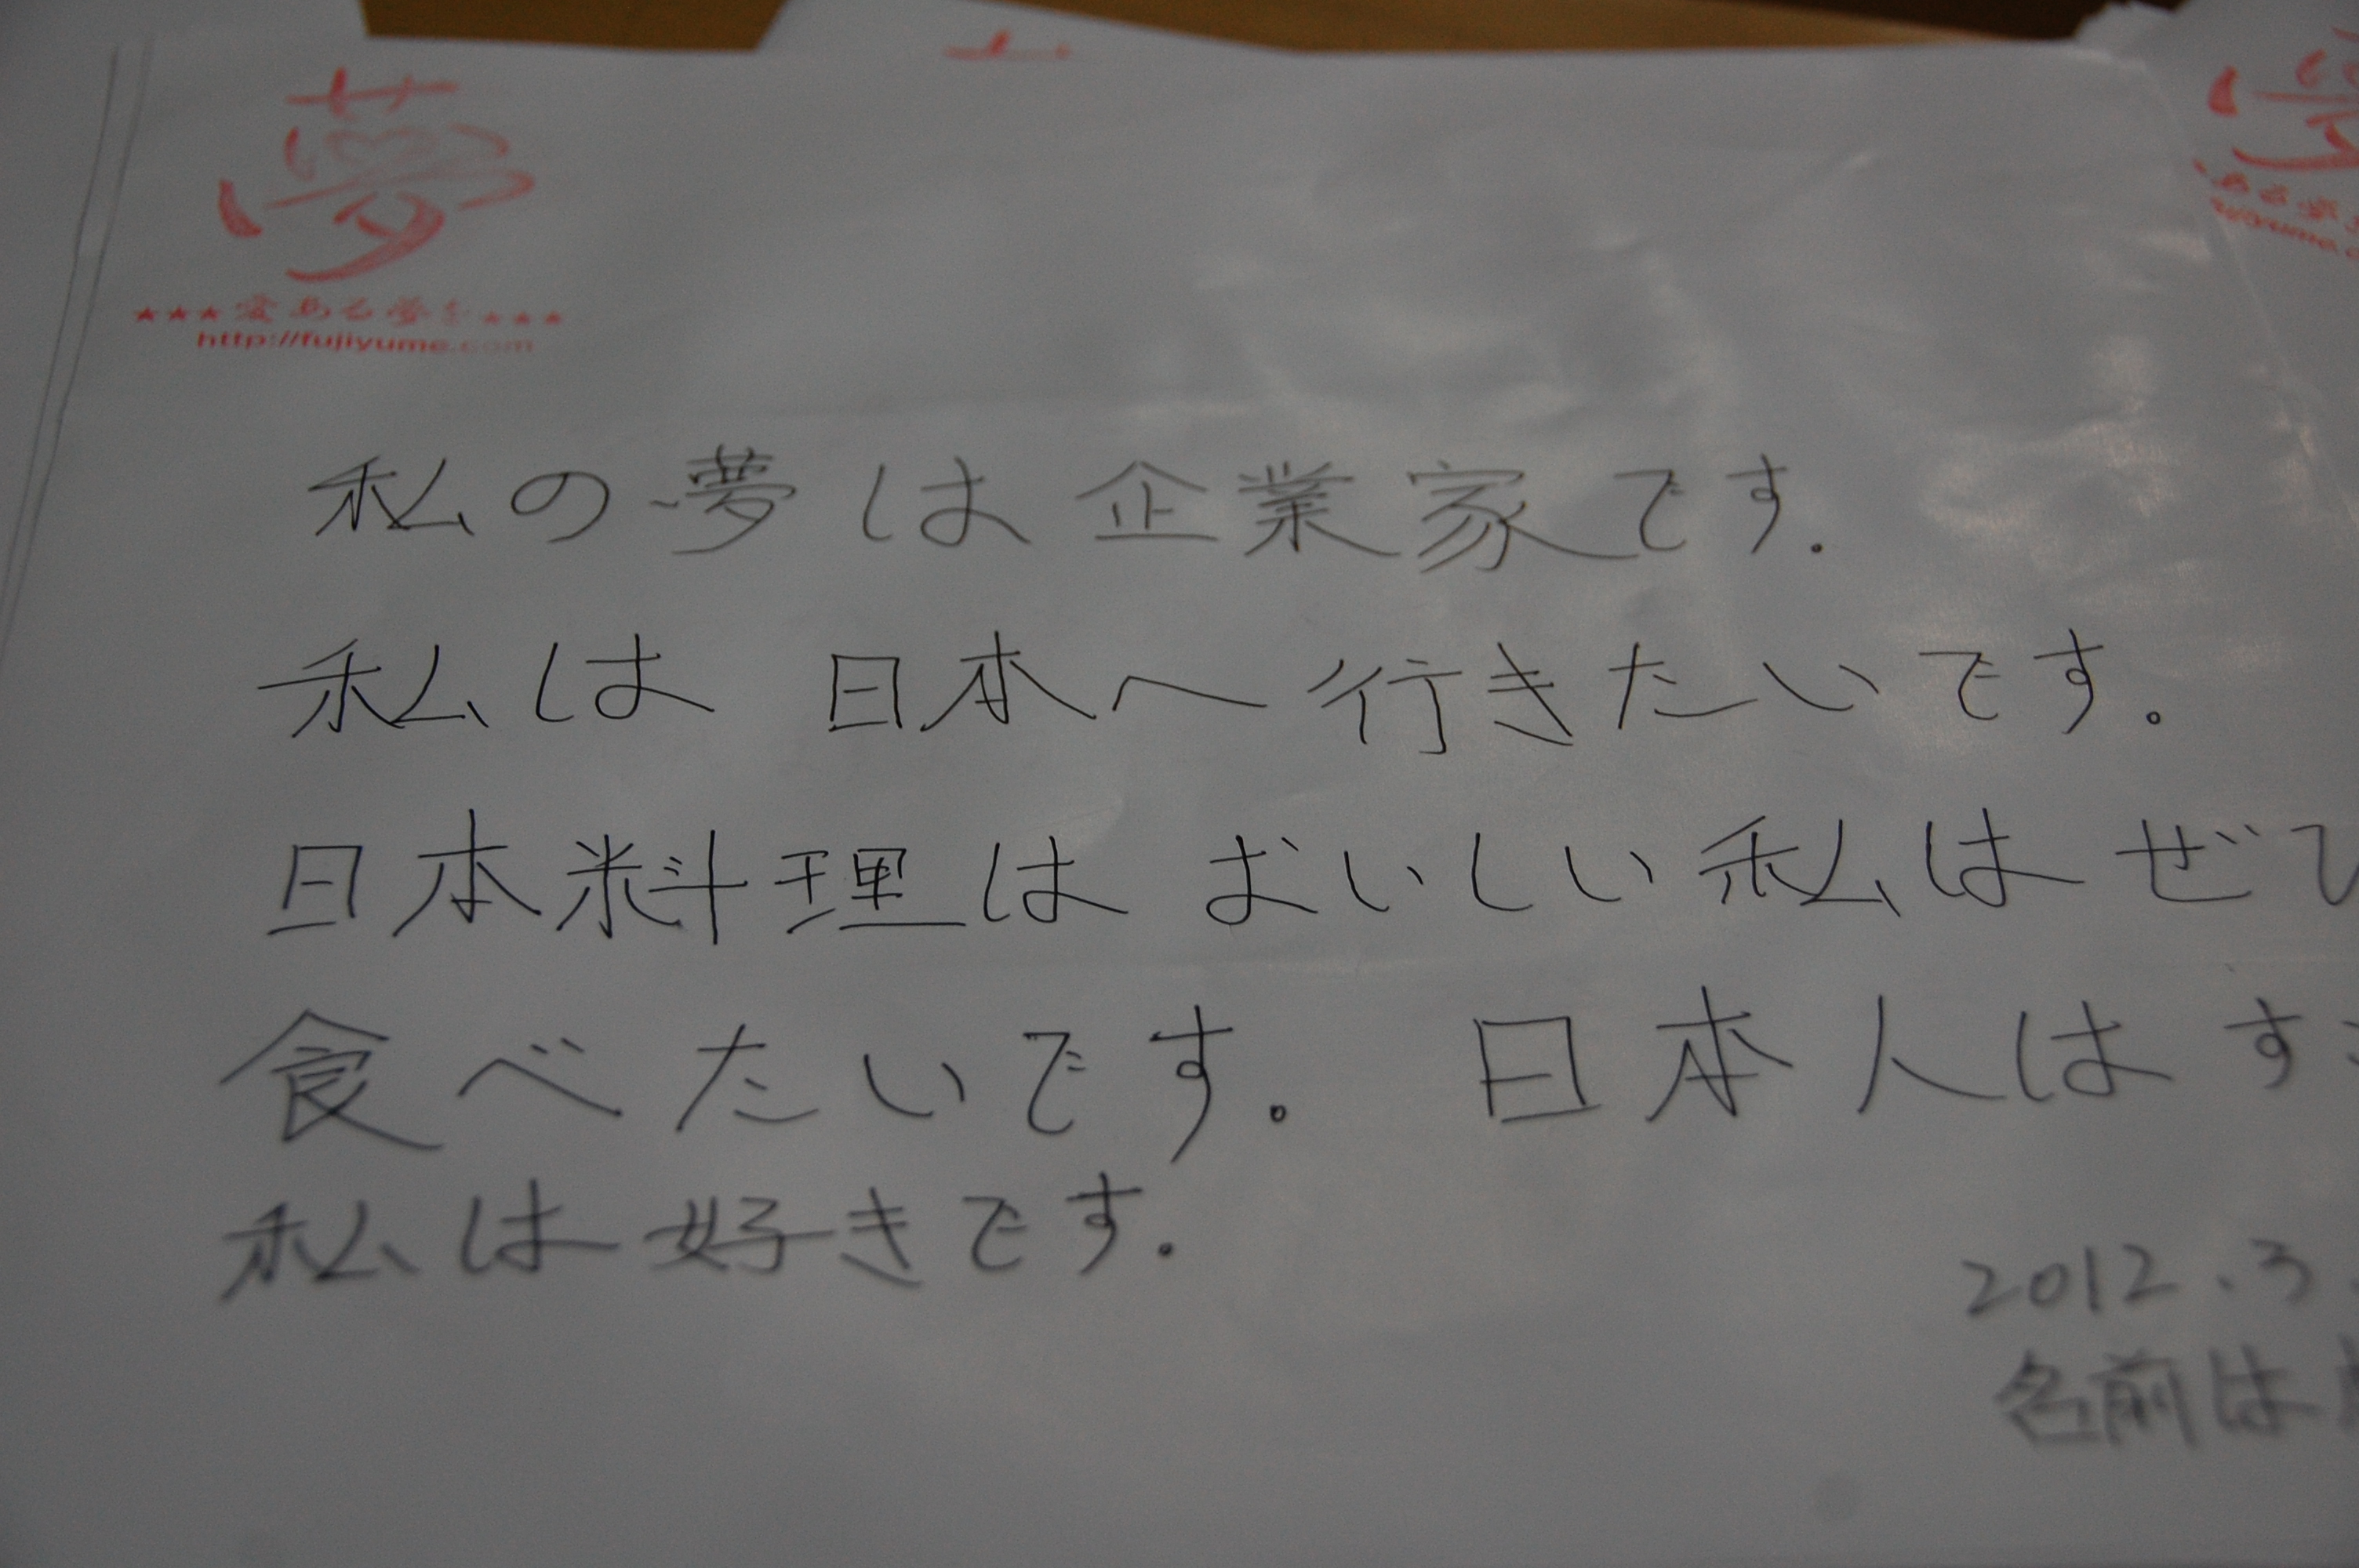 夢
★★★愛ある夢を★★★
http://fujiyume.com
私の夢は企業家です.
私は 日本へ行きたいです。
日本料理は おいしい私は ぜひ
食べたいです。 日本人は す
私は好きです.
2012.3.
名前は